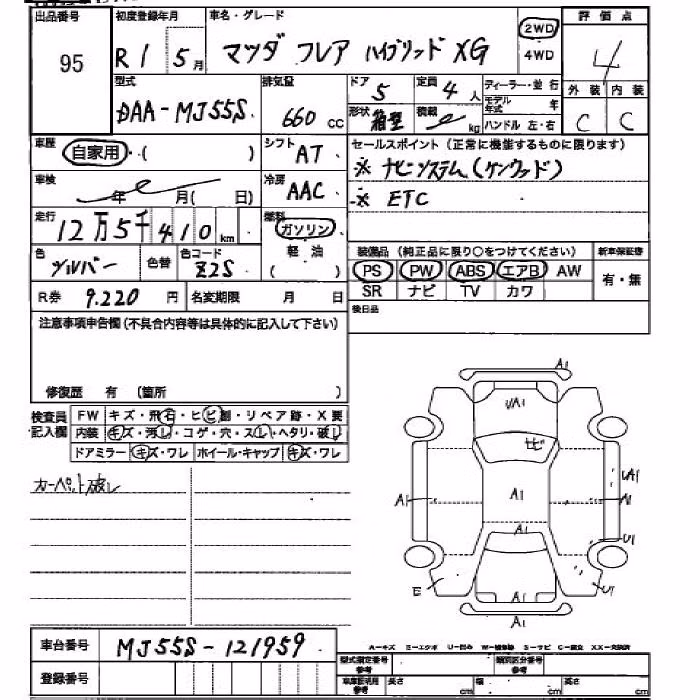 出品番号 初度登録年月 車名・グレード 評価点
95 R1 5月 マツダ フレア ハイブリッド XG 2WD 4WD 4
型式 排気量 ドア 5 定員 4人 ディーラー・並行 外装 内装
DAA-MJ55S 660cc 形状 箱型 積載 kg モデル年式 年 C C
ハンドル 左・右
車歴 自家用・( ) シフト AT セールスポイント(正常に機能するものに限ります)
車検 年 月( 日) 冷房 AAC ※ ナビシステム(ケンウッド)
走行 12万5千410km 燃料 ガソリン ※ ETC
軽油 ( )
色 シルバー 色替 色コード Z2S 装備品(純正品に限り○をつけてください) 新車保証書
PS PW ABS エアB AW 有・無
R券 9.220円 名変期限 月 日 SR ナビ TV カワ
注意事項申告欄(不具合内容等は具体的に記入して下さい) 後日品
修復歴 有 (箇所 )
検査員記入欄 FW キズ・飛石・ヒビ割・リペア跡・X要
内装 キズ・汚レ・コゲ・穴・スレ・ヘタリ・破レ
ドアミラー キズ・ワレ ホイール・キャップ キズ・ワレ
カーペット破レ
A1
UA1
ヒビ
A1 A1 UA1
A1
A1 U1
E U1
A1
A-キズ E-エクボ U-凹み W-補修跡 S-サビ C-腐食 XX-交換済
車台番号 MJ55S-121959
型式指定番号 参考 類別区分番号 参考
登録番号 車庫証明用 参考 長さ cm 幅 cm 高さ cm